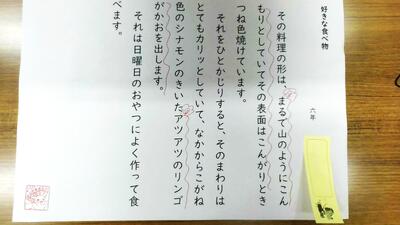 好きな食べ物
六年
その料理の形は、まるで山のようにこん
もりとしていてその表面はこんがりとき
つね色焼けています。
それをひとかじりすると、そのまわりは
とてもカリッとしていて、なかからこがね
色のシナモンのきいたアツアツのリンゴ
がかおを出します。
それは日曜日のおやつによく作って食
べます。